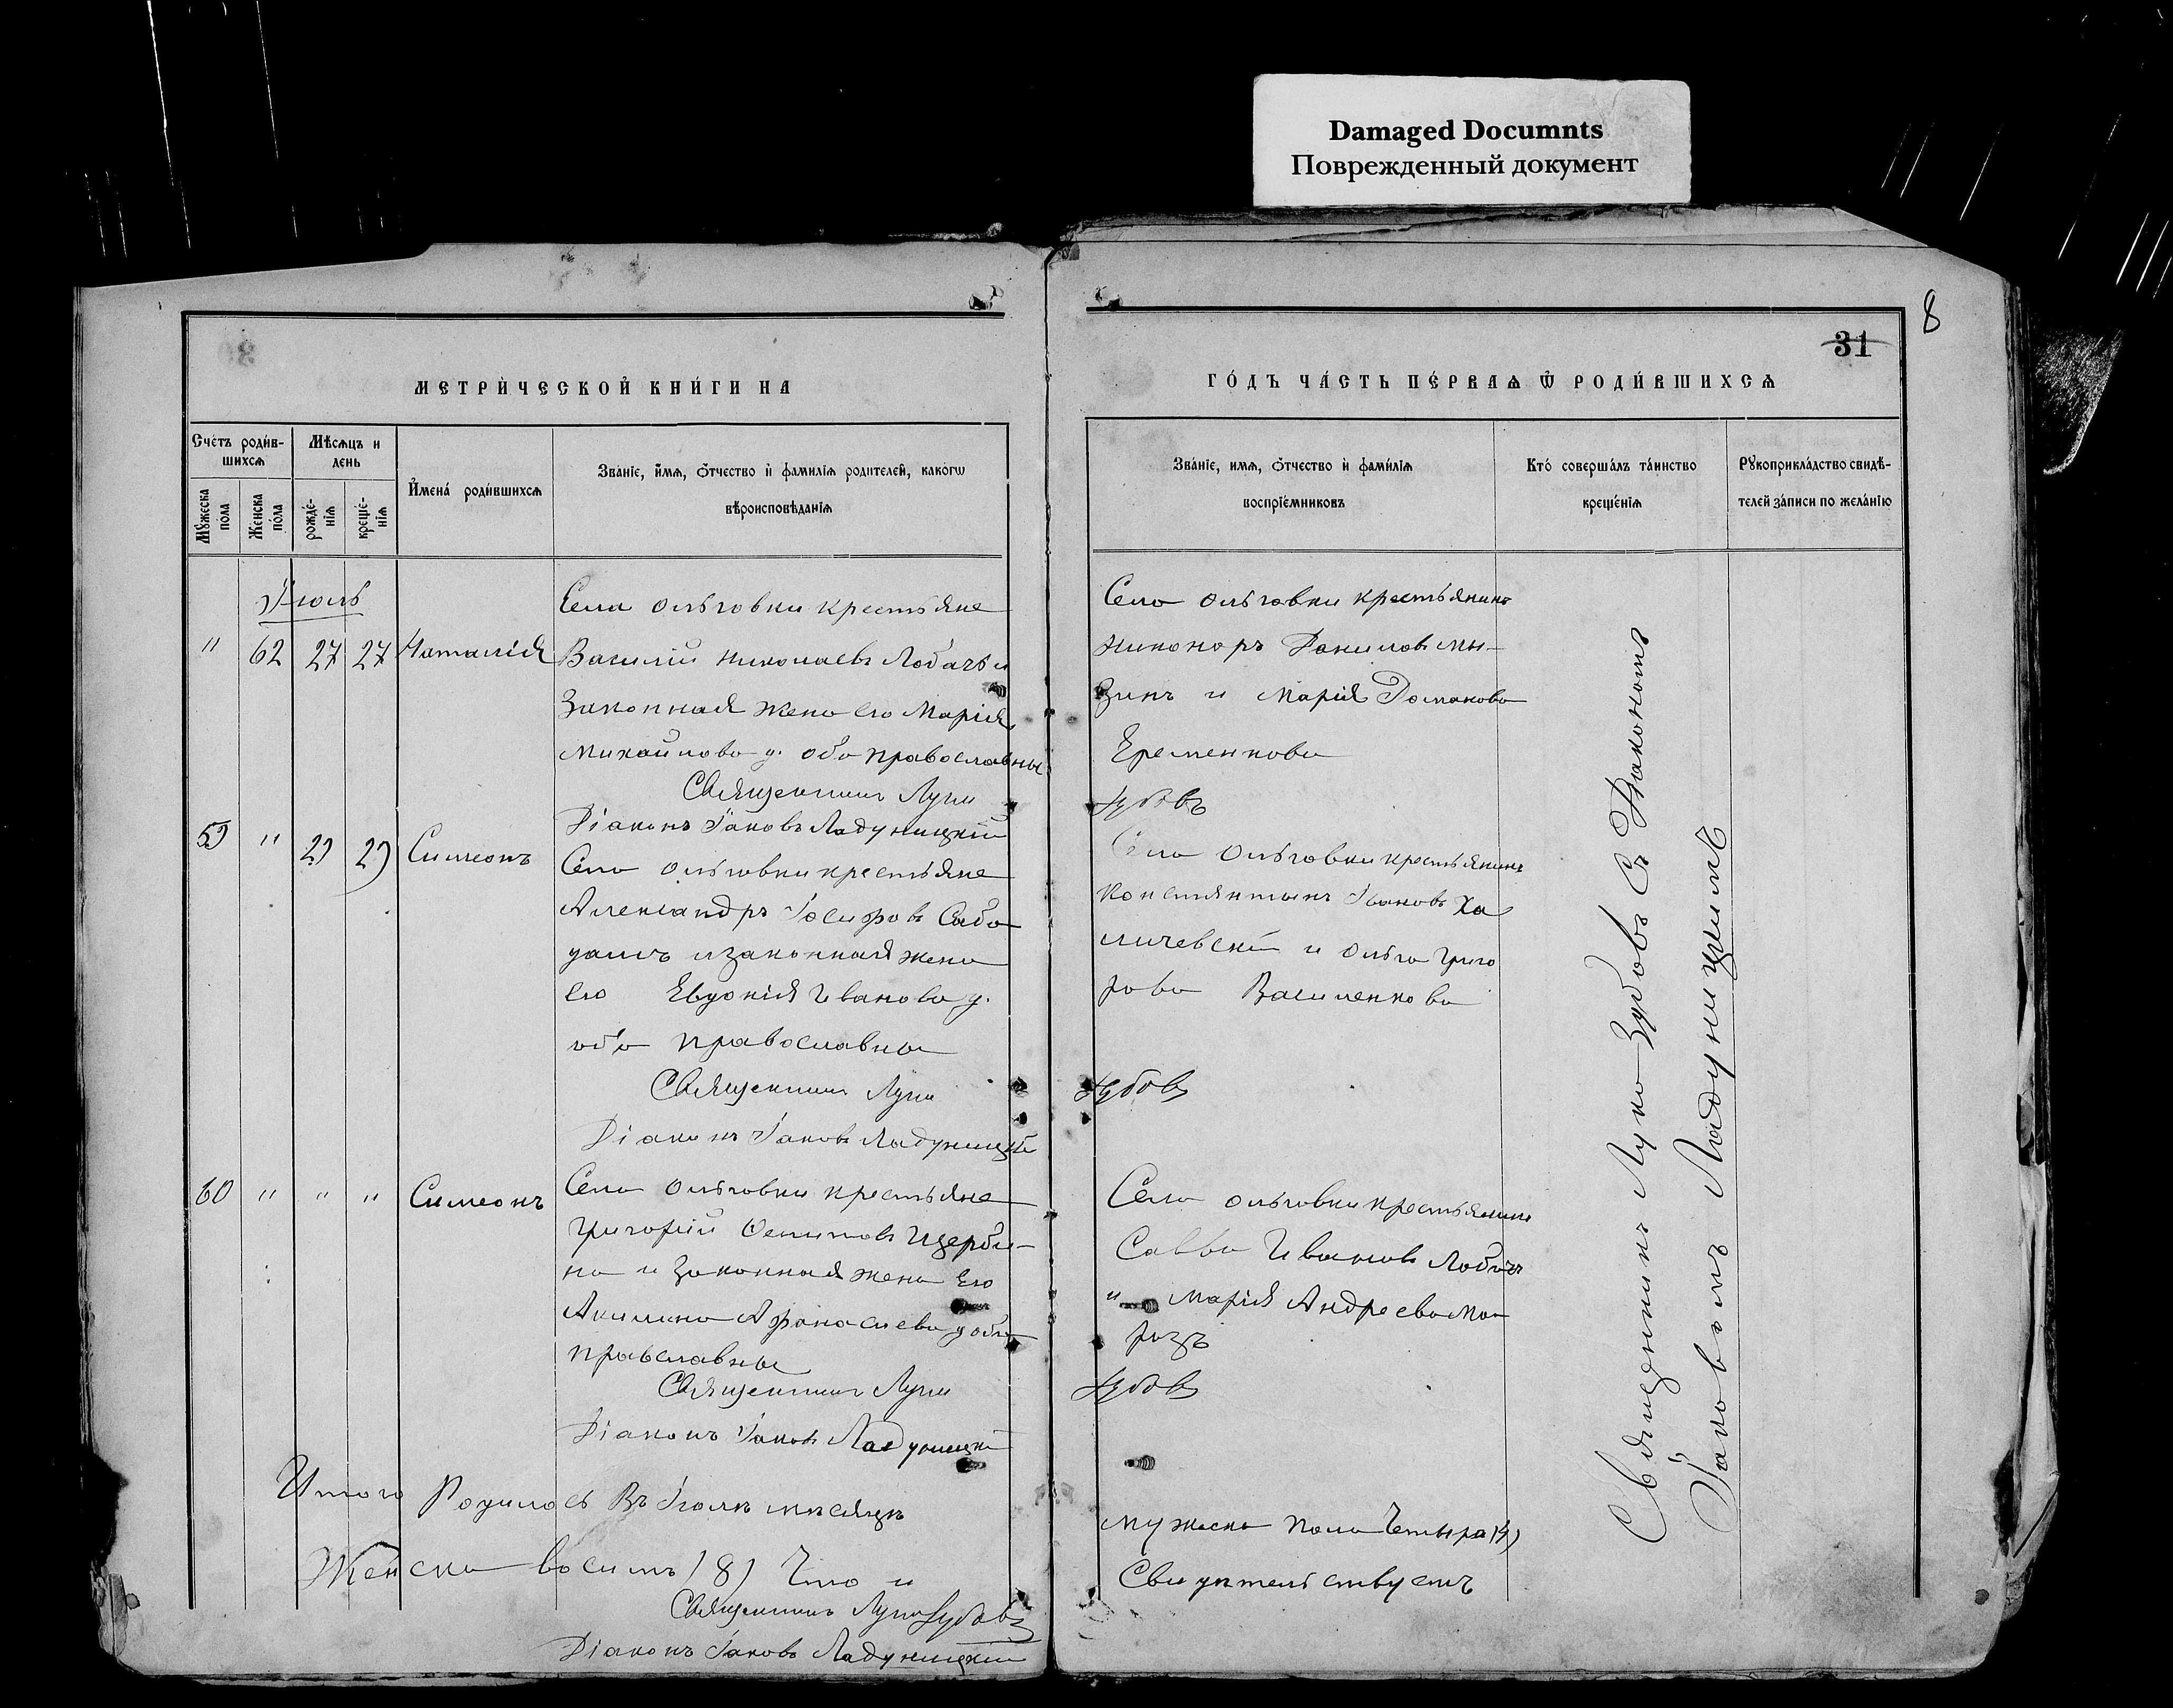 Damaged Documnts
Поврежденный документ
8
31
МЕТРИЧЕСКОЙ КНИГИ НА
ГОДЪ ЧАСТЬ ПЕРВАѦ Ѿ РОДИВШИХСѦ
Счетъ родив-
шихсѧ
Мѣсѧцъ и
день
Мꙋжеска
пола
Женска
пола
рожде-
нїѧ
креще-
нїѧ
Имена родившихсѧ
Званїе, имѧ, ѻтчество и фамилїѧ родителей, какогѡ
вѣроисповѣданїѧ
Званїе, имѧ, ѻтчество и фамилїѧ
воспрїемниковъ
Кто совершалъ таинство
крещенїѧ
Рꙋкоприкладство свидѣ-
телей записи по желанїю
Іюль
" 62 27 27 Наталія
Села Ольговки крестьяне
Василій Николаевъ Лобачь и
Законная жена его Марія
Михайлова д. оба православны
Священникъ Лука
Діаконъ Іаковъ Ладуницкій
Села Ольговки крестьянинъ
Никоноръ Даниловъ Мы-
зинъ и Марія Романова
Еременкова
Зубовъ
59 " 29 29 Симеонъ
Села Ольговки крестьяне
Александръ Іосифовъ Сабо
дашъ и законная жена
его Евдокія Иванова д.
оба православны
Священникъ Лука
Діаконъ Іаковъ Ладуницкій
Села Ольговки крестьянинъ
Константинъ Ивановъ Ха
личевскій и Ольга Григо
рова Василенкова
Зубовъ
60 " " " Симеонъ
Села Ольговки крестьяне
Григорій Осиповъ Щерби-
на и Законная жена Его
Акилина Афанасиева д оба
православны
Священникъ Лука
Діаконъ Іаковъ Ладуницкій
Села Ольговки крестьянинъ
Савва Ивановъ Лобачъ
и Марія Андреева Мо
розъ
Зубовъ
Священникъ Лука Зубовъ Съ Діакономъ
Іаковомъ Ладуницкимъ
Итого Родилось Въ Іюлѣ мѣсяцѣ
мужеска пола Четыре (4)
Женска восимь (8) Что и
Свидѣтельствуемъ
Священникъ Лука Зубовъ
Діаконъ Іаковъ Ладуницкій